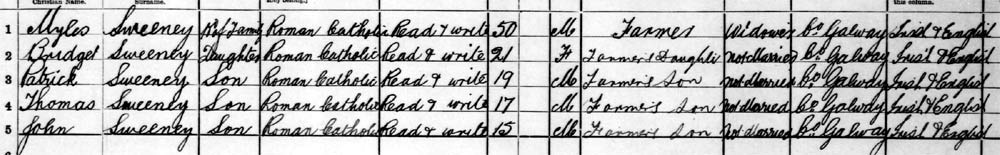 Christian Name. Surname. this column.
1 Myles Sweeney Hd of Family Roman Catholic Read & write 50 M Farmer Widower Co Galway Irish & English
2 Bridget Sweeney Daughter Roman Catholic Read & write 21 F Farmer's Daughter Not Married Co Galway Irish & English
3 Patrick Sweeney Son Roman Catholic Read & write 19 M Farmer's Son Not Married Co Galway Irish & English
4 Thomas Sweeney Son Roman Catholic Read & write 17 M Farmer's Son Not Married Co Galway Irish & English
5 John Sweeney Son Roman Catholic Read & write 15 M Farmer's Son Not Married Co Galway Irish & English